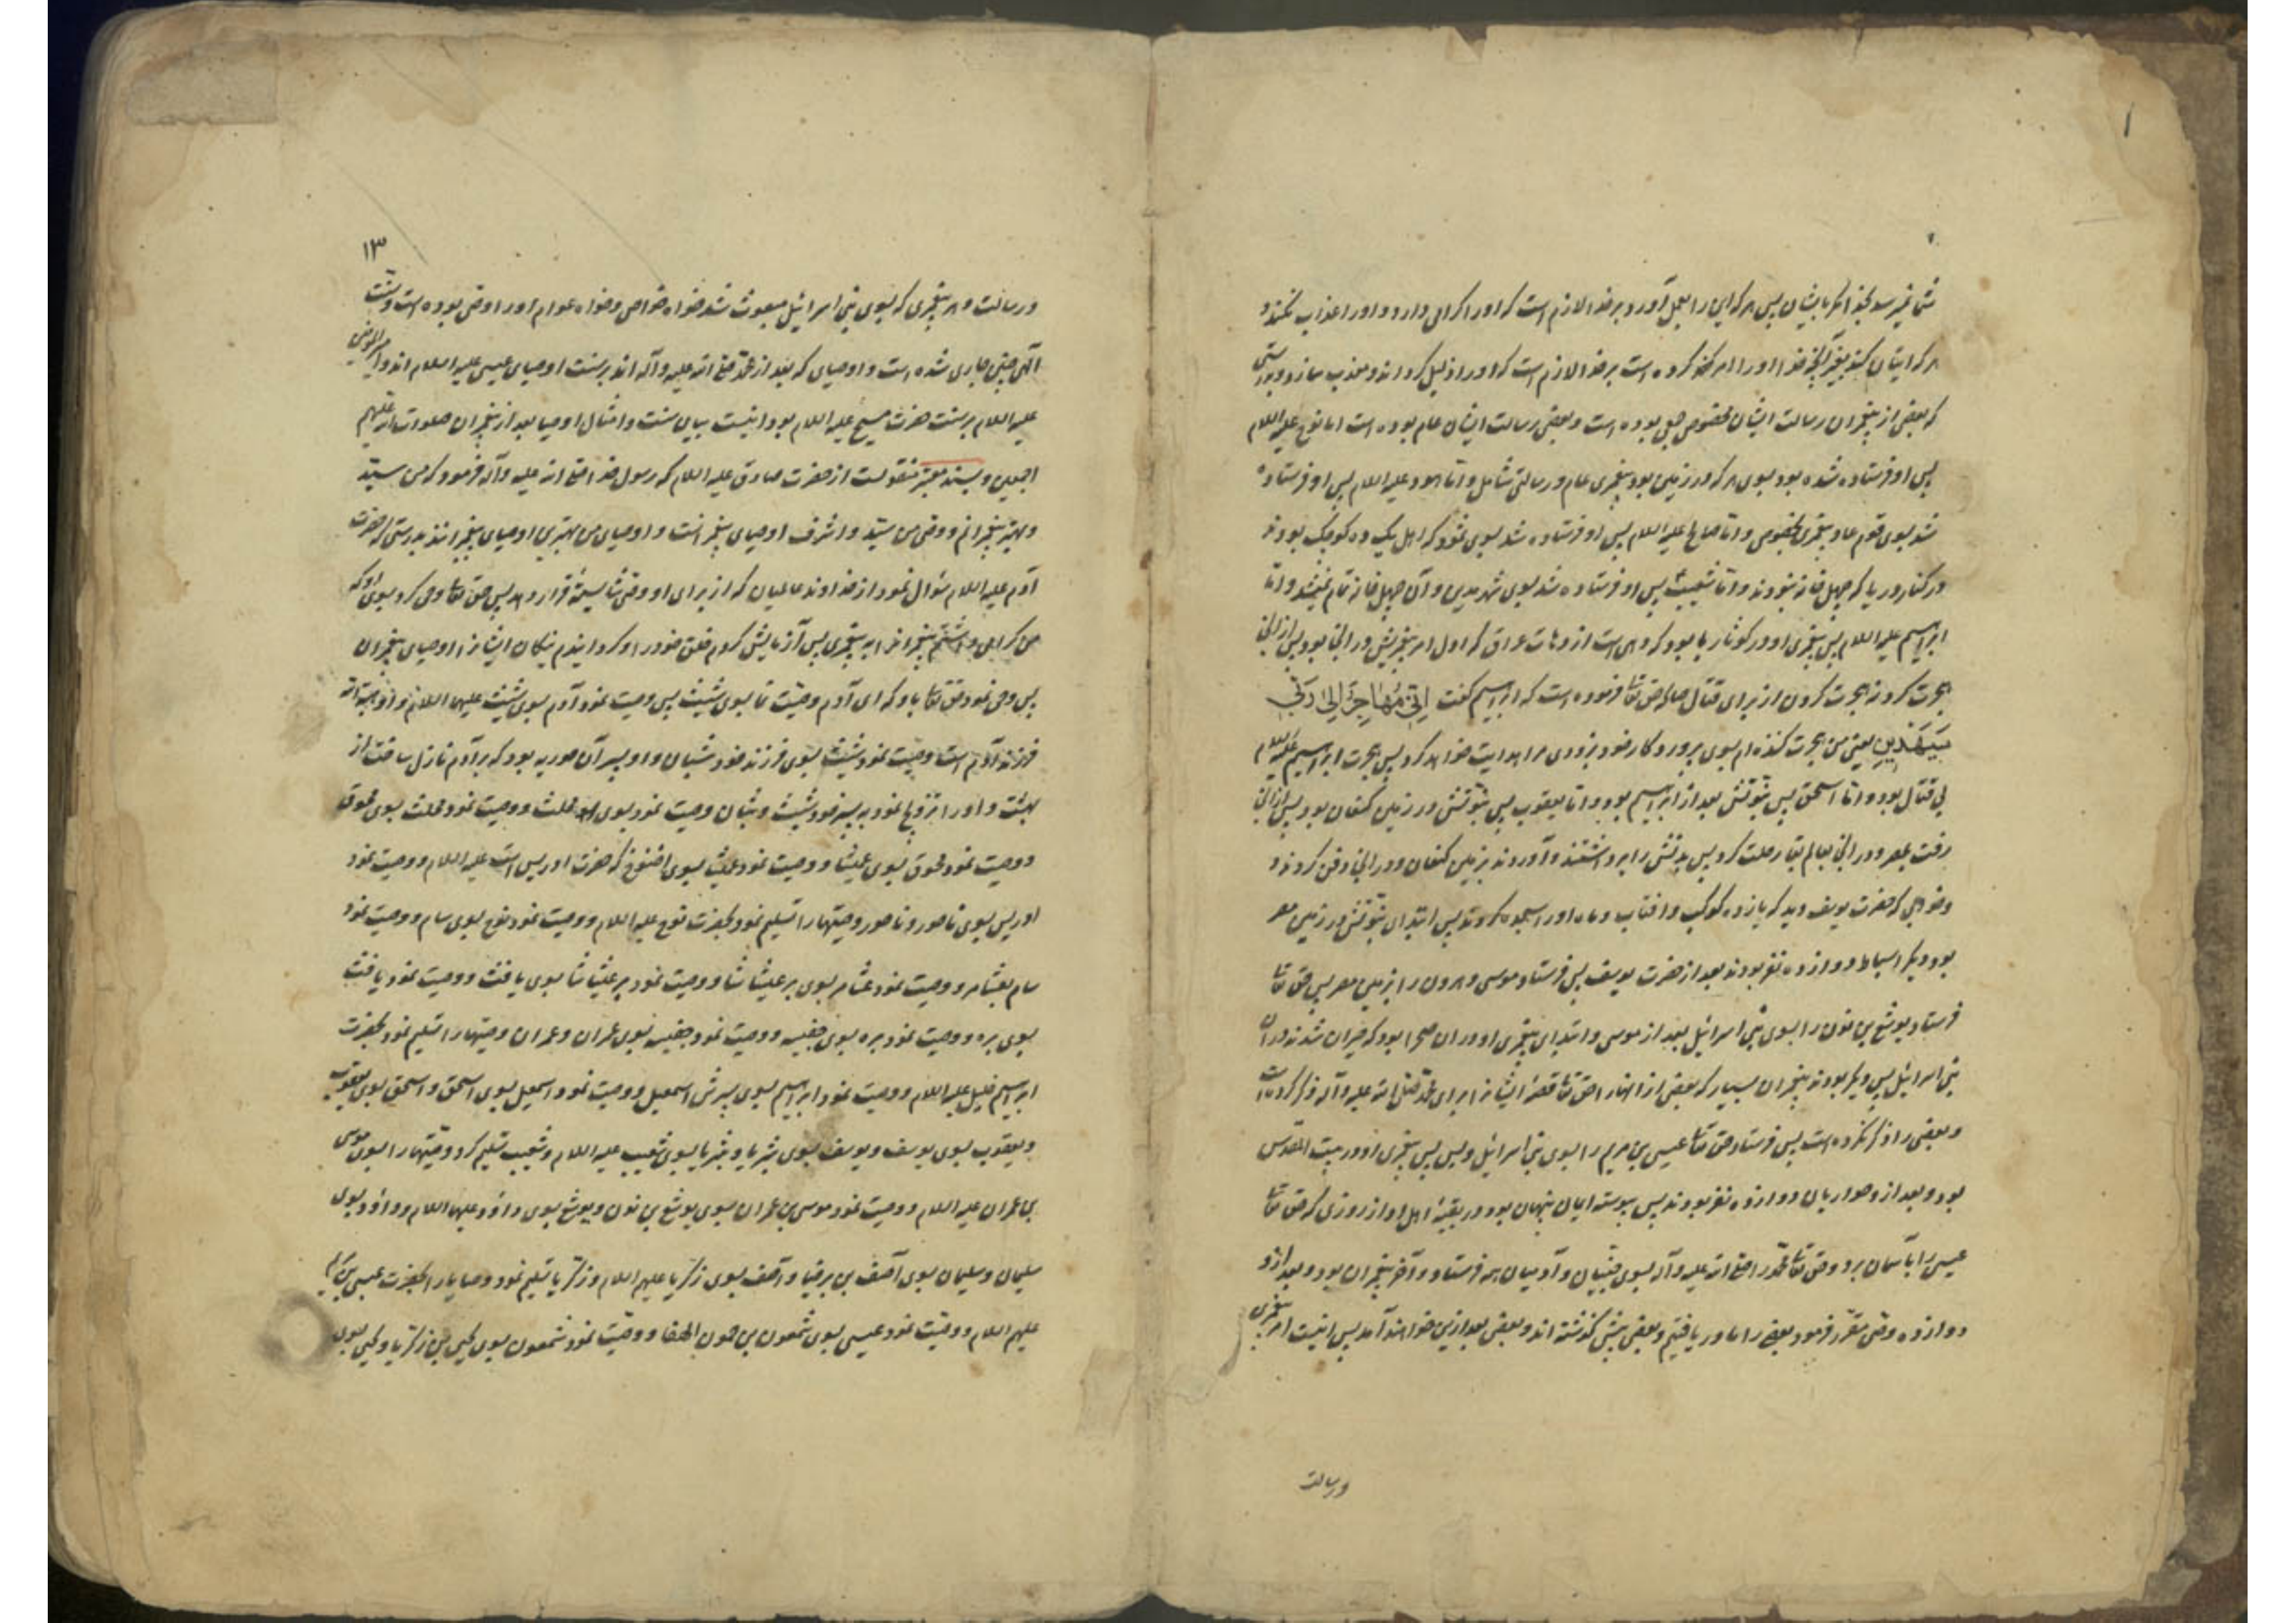 ۱
شما نمیرسد بجز امر بایشان پس هر که این را بعمل آورد بر خدا لازم است که او را گرامی دارد و او را عذاب نکند و
هر که ایتان کند بغیر آنچه خدا او را امر کرده است بر خدا لازم است که او را ذلیل گرداند و معذب سازد و بدرستی
که بعضی از پیغمبران رسالت ایشان مخصوص جمعی بوده است و بعضی رسالت ایشان عام بوده است اما نوح علیه السلام
پس او فرستاده شده بود بسوی هر که در زمین بود پیغمبری عام و رسالتی شامل و اما هود علیه السلام پس او فرستاده
شد بسوی قوم عاد پیغمبری مخصوص و اما صالح علیه السلام پس او فرستاده شد بسوی ثمود که اهل یک ده کوچک بودند
در کنار دریا که چهل خانه نبودند و اما شعیب پس او فرستاده شد بسوی شهر مدین و آن چهل خانه تمام نمیشد و اما
ابراهیم علیه السلام پس پیغمبری او در کوثاربا بود که دهی است از دهات عراق که اول امر پیغمبریش در آنجا بود پس از آنجا
هجرت کرد نه هجرت کردن از برای قتال چنانکه حق تعالی فرموده است که ابراهیم گفت اِنّی مُهٰاجِرٌ اِلیٰ رَبّی
سَیَهْدینِ یعنی من هجرت کننده‌ام بسوی پروردگار خود بزودی مرا هدایت خواهد کرد پس هجرت ابراهیم علیه السلام
بی قتال بود و اما اسحق پس نبوّتش بعد از ابراهیم بود و اما یعقوب پس نبوّتش در زمین کنعان بود پس از آنجا
رفت بمصر و در آنجا بعالم بقا رحلت کرد پس بدنش را برداشتند و آوردند بزمین کنعان و در آنجا دفن کردند و
و خوابی که حضرت یوسف دید که یازده کوکب و آفتاب و ماه او را سجده کردند پس ابتدای نبوّتش در زمین مصر
بود و دیگر اسباط دوازده نفر بودند بعد از حضرت یوسف پس فرستاد موسی و هرون را بزمین مصر پس حق تعالی
فرستاد یوشع بن نون را بسوی بنی اسرائیل بعد از موسی و ابتدای پیغمبری او در آن صحرا بود که حیران شدند در آن
بنی اسرائیل پس دیگر بودند پیغمبران بسیار که بعضی از آنها را حق تعالی قصّه ایشان را برای محمّد صلی الله علیه و آله ذکر کرده است
و بعضی را ذکر نکرده است پس فرستاد حق تعالی عیسی بن مریم را بسوی بنی اسرائیل و بس پس پیغمبری او در بیت المقدس
بود و بعد از و حواریان دوازده نفر بودند پس پیوسته ایمان پنهان بود در بقیهٔ اهل او از روزی که حق تعالی
عیسی را بآسمان برد و حق تعالی محمّد را صلی الله علیه و آله بسوی جنّیان و آدمیان همه فرستاد و آخر پیغمبران بود و بعد از و
دوازده وصی مقرّر فرمود بعضی را ما دریافتیم و بعضی پیش گذشته‌اند و بعضی بعد ازین خواهند آمد پس اینست امر پیغمبری
و رسالت
۱۳
و رسالت و هر پیغمبری که بسوی بنی اسرائیل مبعوث شد خواه خواص و خواه عوام او را وصی بوده است و سنت
الهی چنین جاری شده است و اوصیای که بعد از محمّد صلی الله علیه و آله‌اند بر سنت اوصیای عیسی علیه السلام‌اند و امیر المؤمنین
علیه السلام بر سنت حضرت مسیح علیه السلام بود اینست بیان سنت و امثال اوصیا بعد از پیغمبران صلوات الله علیهم
اجمعین و بسند معتبر منقولست از حضرت صادق علیه السلام که رسول خدا صلی الله علیه و آله فرمود که من سیّد
و بهتر پیغمبرانم و وصی من سیّد و اشرف اوصیای پیغمبرانست و اوصیای من بهترین اوصیای پیغمبرانند بدرستی که حضرت
آدم علیه السلام سؤال نمود از خداوند عالمیان که از برای او وصی شایسته قرار دهد پس حق تعالی وحی کرد بسوی او که
من گرامی داشتم پیغمبران را به پیغمبری پس آزمایش کردم خلق خود را و گردانیدم نیکان ایشان را اوصیای پیغمبران
پس وحی نمود حق تعالی باو که ای آدم وصیّت نما بسوی شیث پس وصیت نمود آدم بسوی شیث علیهما السلام و او هبة الله
فرزند آدم است و وصیت نمود شیث بسوی فرزند خود شبان و او پسر آن حوریه بود که بر آدم نازل ساخت از
بهشت و او را تزویج نمود به پسر خود شیث و شبان وصیت نمود بسوی محلث و وصیت نمود محلث بسوی محوق
و وصیت نمود محوق بسوی عمیشا و وصیت نمود عمیشا بسوی اخنوخ که حضرت ادریس است علیه السلام و وصیت نمود
ادریس بسوی ناحور و ناحور وصیتها را تسلیم نمود بحضرت نوح علیه السلام و وصیت نمود نوح بسوی سام و وصیت نمود
سام بعثامر و وصیت نمود عثامر بسوی برعیثاشا و وصیت نمود برعیثاشا بسوی یافث و وصیت نمود یافث
بسوی بره و وصیت نمود بره بسوی جفیسه و وصیت نمود جفیسه بسوی عمران و عمران وصیتها را تسلیم نمود بحضرت
ابراهیم خلیل علیه السلام و وصیت نمود ابراهیم بسوی پسرش اسمعیل و وصیت نمود اسمعیل بسوی اسحق و اسحق بسوی یعقوب
و یعقوب بسوی یوسف و یوسف بسوی بثریا و بثریا بسوی شعیب علیه السلام و شعیب تسلیم کرد وصیّتها را بسوی موسی
بن عمران علیه السلام و وصیت نمود موسی بن عمران بسوی یوشع بن نون و یوشع بسوی داؤد علیهما السلام و داؤد بسوی
سلیمان و سلیمان بسوی آصف بن برخیا و آصف بسوی زکریا علیهم السلام و زکریا تسلیم نمود وصایا را بحضرت عیسی بن مریم
علیهم السلام و وصیت نمود عیسی بسوی شمعون بن حمون الصفا و وصیّت نمود شمعون بسوی یحیی بن زکریا و یحیی بسوی